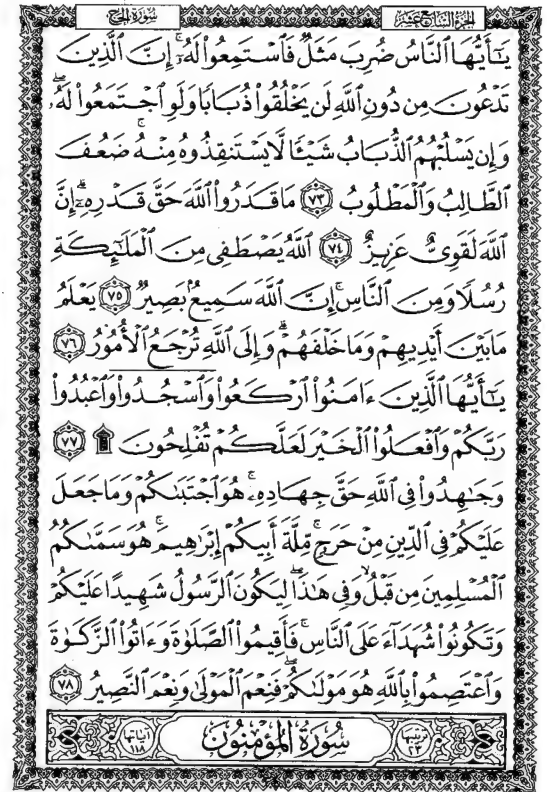 سُورَةُ الحَجّ الجُزءُ السَّابِعَ عَشَرَ
يَـٰٓأَيُّهَا ٱلنَّاسُ ضُرِبَ مَثَلٌ فَٱسْتَمِعُوا۟ لَهُۥٓ ۚ إِنَّ ٱلَّذِينَ
تَدْعُونَ مِن دُونِ ٱللَّهِ لَن يَخْلُقُوا۟ ذُبَابًا وَلَوِ ٱجْتَمَعُوا۟ لَهُۥ ۖ
وَإِن يَسْلُبْهُمُ ٱلذُّبَابُ شَيْـًٔا لَّا يَسْتَنقِذُوهُ مِنْهُ ۚ ضَعُفَ
ٱلطَّالِبُ وَٱلْمَطْلُوبُ ٧٣ مَا قَدَرُوا۟ ٱللَّهَ حَقَّ قَدْرِهِۦٓ ۗ إِنَّ
ٱللَّهَ لَقَوِىٌّ عَزِيزٌ ٧٤ ٱللَّهُ يَصْطَفِى مِنَ ٱلْمَلَـٰٓئِكَةِ
رُسُلًا وَمِنَ ٱلنَّاسِ ۚ إِنَّ ٱللَّهَ سَمِيعٌۢ بَصِيرٌ ٧٥ يَعْلَمُ
مَا بَيْنَ أَيْدِيهِمْ وَمَا خَلْفَهُمْ ۗ وَإِلَى ٱللَّهِ تُرْجَعُ ٱلْأُمُورُ ٧٦
يَـٰٓأَيُّهَا ٱلَّذِينَ ءَامَنُوا۟ ٱرْكَعُوا۟ وَٱسْجُدُوا۟ وَٱعْبُدُوا۟
رَبَّكُمْ وَٱفْعَلُوا۟ ٱلْخَيْرَ لَعَلَّكُمْ تُفْلِحُونَ ۩ ٧٧
وَجَـٰهِدُوا۟ فِى ٱللَّهِ حَقَّ جِهَادِهِۦ ۚ هُوَ ٱجْتَبَىٰكُمْ وَمَا جَعَلَ
عَلَيْكُمْ فِى ٱلدِّينِ مِنْ حَرَجٍ ۚ مِّلَّةَ أَبِيكُمْ إِبْرَٰهِيمَ ۚ هُوَ سَمَّىٰكُمُ
ٱلْمُسْلِمِينَ مِن قَبْلُ وَفِى هَـٰذَا لِيَكُونَ ٱلرَّسُولُ شَهِيدًا عَلَيْكُمْ
وَتَكُونُوا۟ شُهَدَآءَ عَلَى ٱلنَّاسِ ۚ فَأَقِيمُوا۟ ٱلصَّلَوٰةَ وَءَاتُوا۟ ٱلزَّكَوٰةَ
وَٱعْتَصِمُوا۟ بِٱللَّهِ هُوَ مَوْلَىٰكُمْ ۖ فَنِعْمَ ٱلْمَوْلَىٰ وَنِعْمَ ٱلنَّصِيرُ ٧٨
ترتيبها ٢٣ سُورَةُ المُؤْمِنُونَ آياتها ١١٨